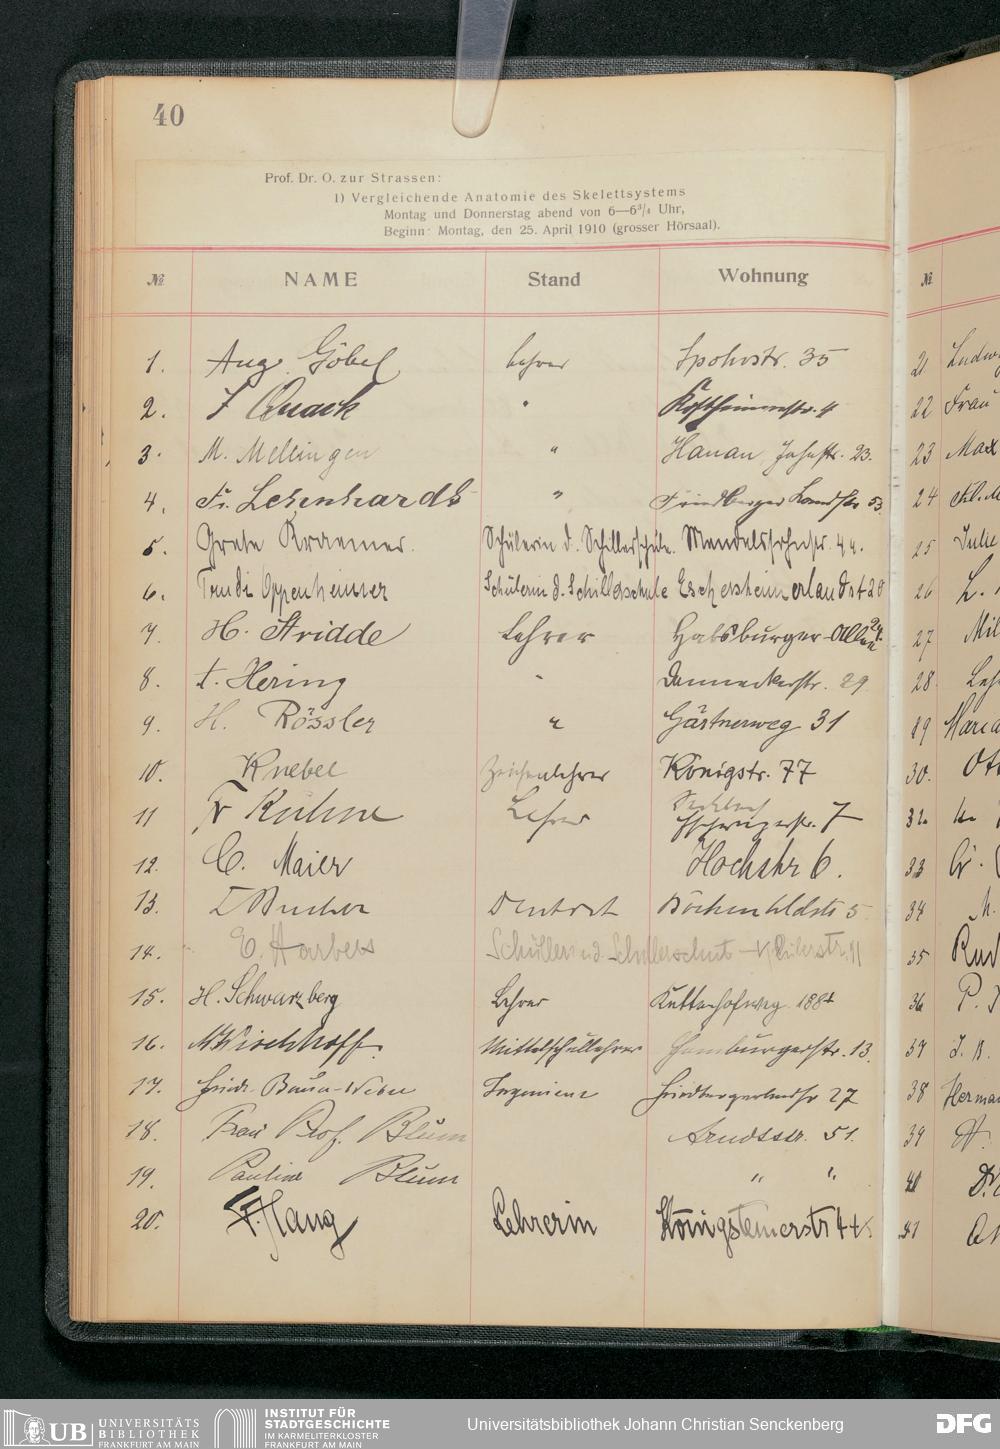 40
Prof. Dr. O. zur Strassen:
1) Vergleichende Anatomie des Skelettsystems
Montag und Donnerstag abend von 6—6¾ Uhr,
Beginn: Montag, den 25. April 1910 (grosser Hörsaal).
№ NAME Stand Wohnung
1. Aug. Göbel Lehrer Spohrstr. 35
2. F Quack "
3. M. Mellingen " Hanau, Jahnstr. 23.
4. Fr. Lehnhardt " Friedberger Landstr 53
5. Grete Kraemer. Schülerin d. Schillerschule. Mendelssohnstr. 44.
6. Trudi Oppenheimer Schülerin d. Schillerschule Eschersheimerlandst 28
7. H. Stridde Lehrer Habsburger-Allee 24.
8. t. Hering " Danneckerstr. 29
9. H. Rössler " Gärtnerweg 31
10. Knebel Zeichenlehrer Königstr. 77
11 Fr Kühne Lehrer 7
12. C. Maier Hochstr 6.
13. Bucher 5
14. E. Harbers
15. H. Schwarzberg Lehrer 188
16. Wischhoff. Mittelschullehrer Homburgerstr. 13.
17. Friedr. Baur-Weber Ingenieur Friedbergerlandstr 27
18. Frau Prof. Blum Arndtstr. 51.
19. Pauline Blum " "
20. F. Haug Lehrerin Königsteinerstr 44
№
21 Ludw
22 Frau
23 Max
24
25 Julie
26 L.
27 Mil
28
29 Maria
30. Ott
32.
33
34 M.
35 Rud
36 P.
37 J. B.
38 Herma
39
40 Dr
41
UB UNIVERSITÄTS
BIBLIOTHEK
FRANKFURT AM MAIN
INSTITUT FÜR
STADTGESCHICHTE
IM KARMELITERKLOSTER
FRANKFURT AM MAIN
Universitätsbibliothek Johann Christian Senckenberg
DFG